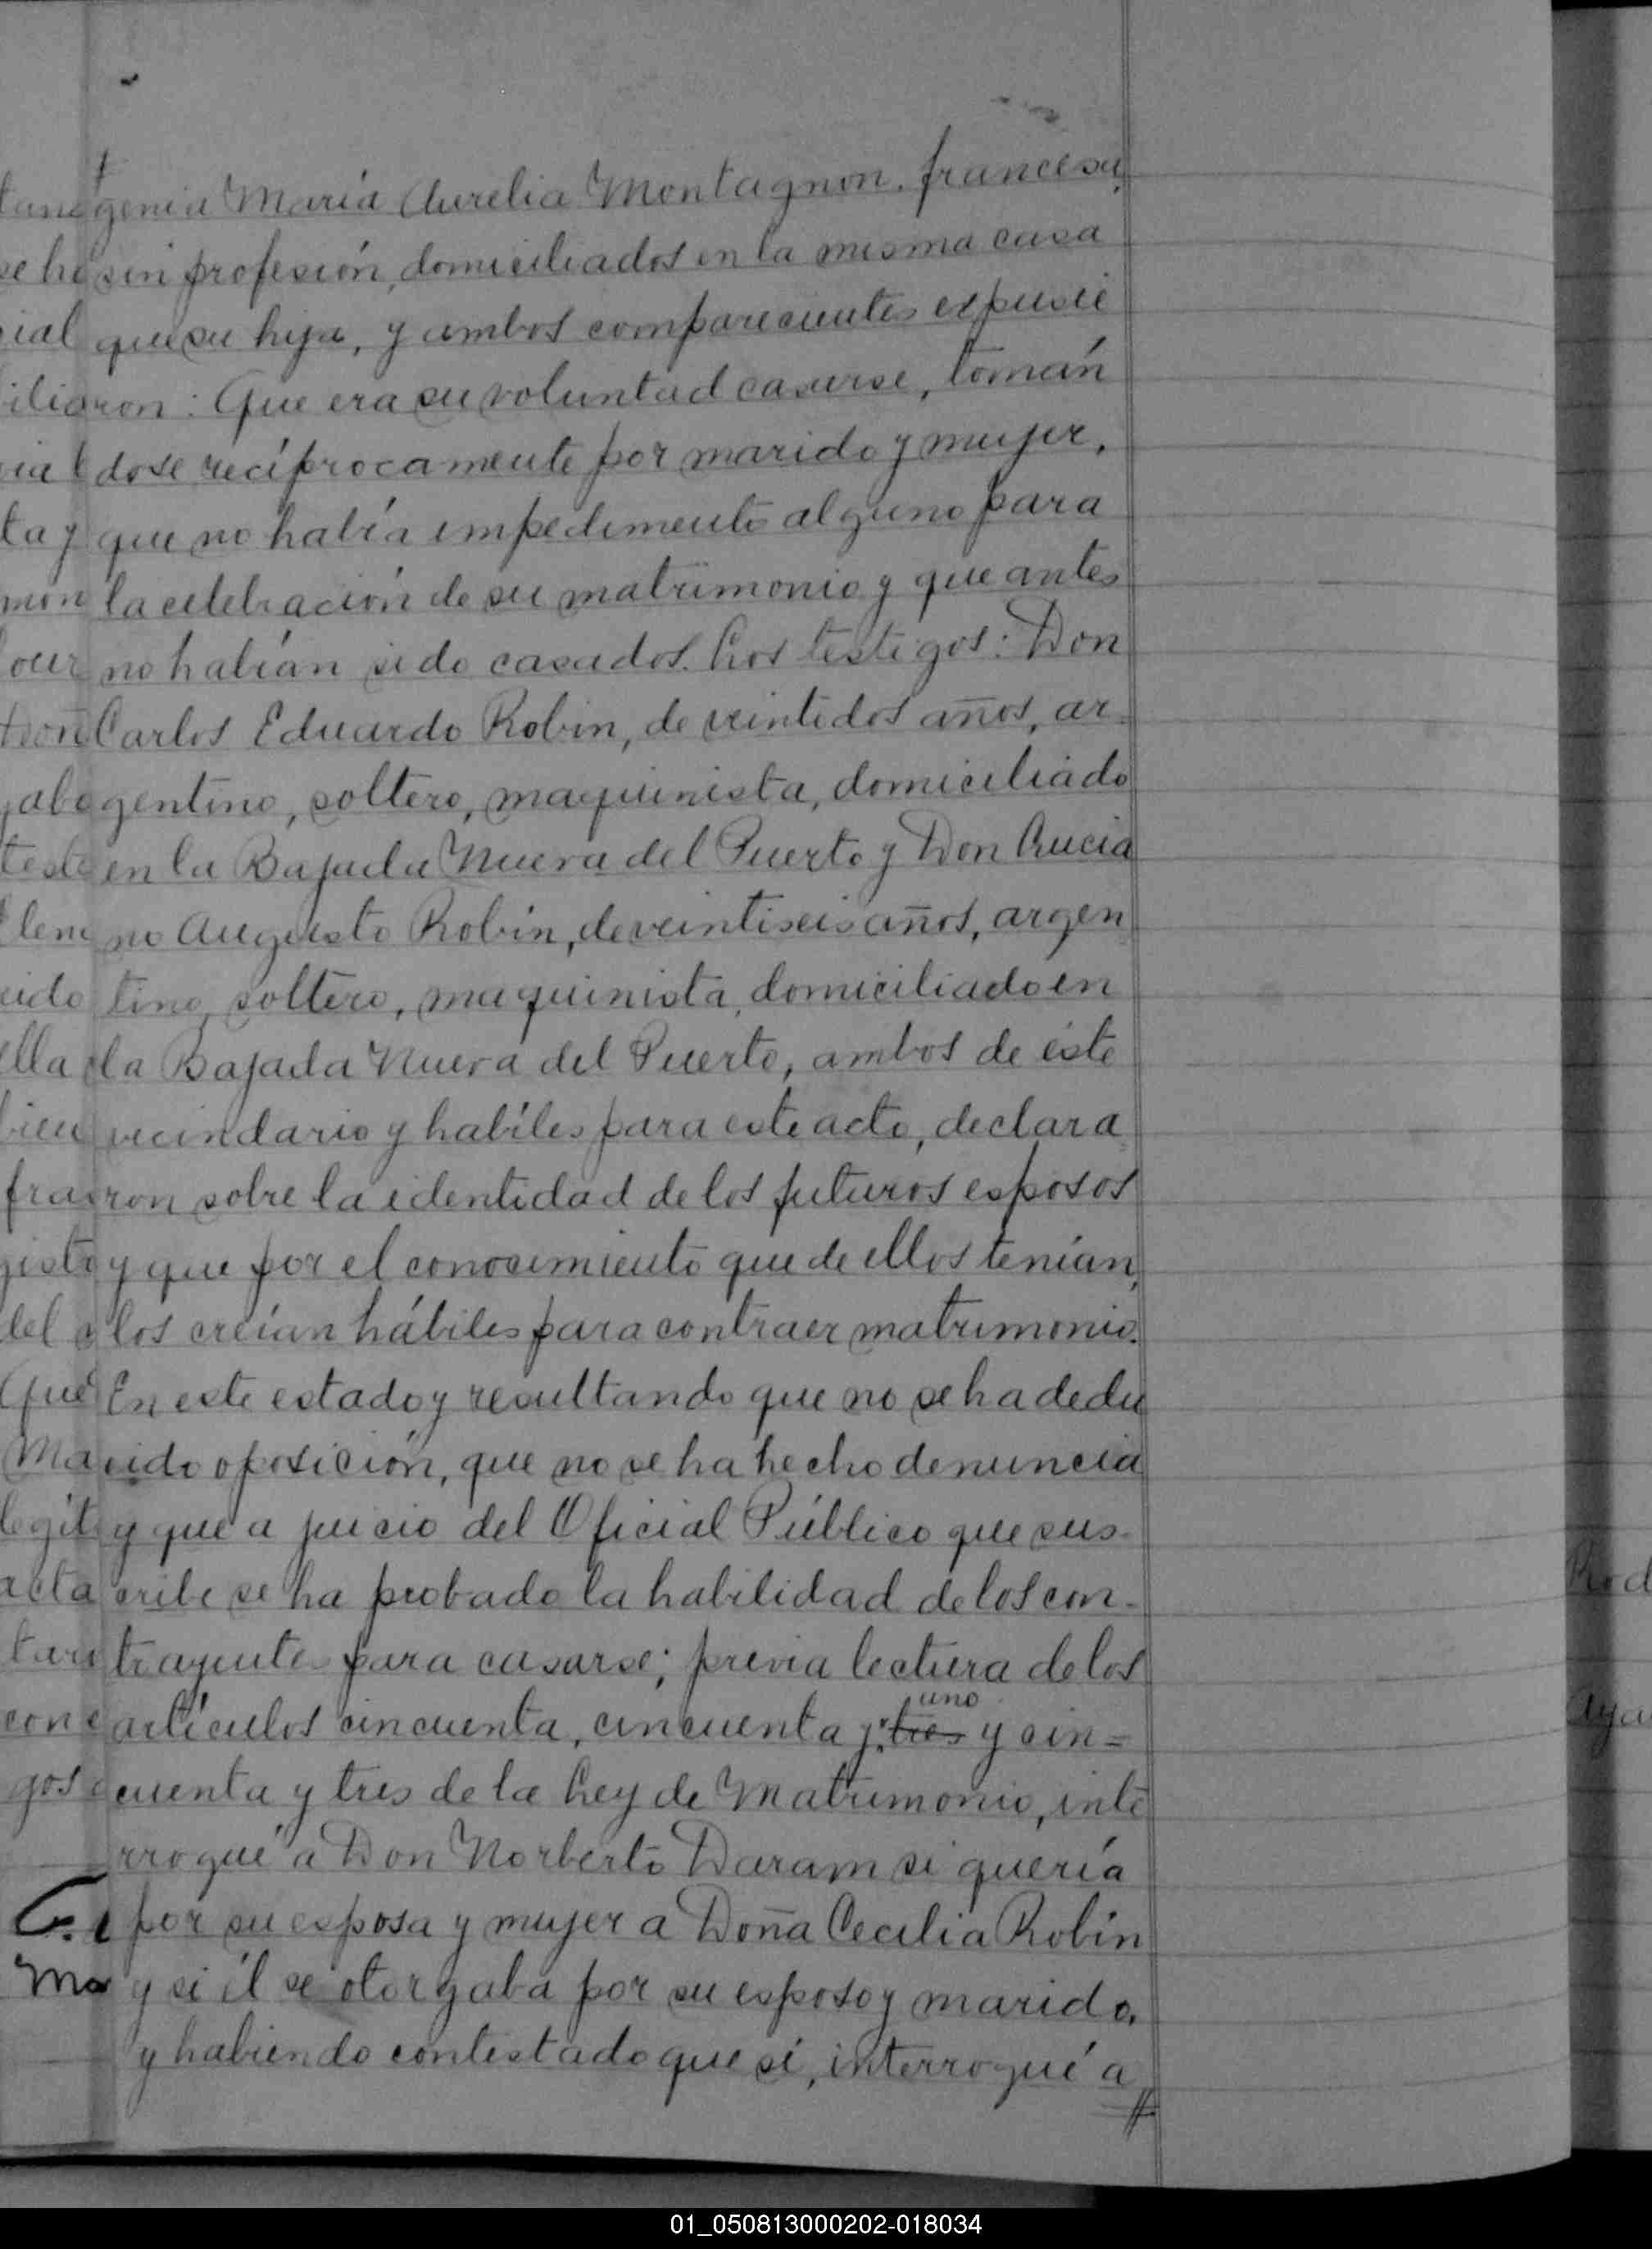 genia María Aurelia Montagnon, francesa,
sin profesión, domiciliados en la misma casa
que su hija, y ambos comparecientes expusie
ron: Que era su voluntad casarse, tomán
dose recíprocamente por marido y mujer,
que no había impedimento alguno para
la celebración de su matrimonio y que antes
no habían sido casados. Los testigos: Don
Carlos Eduardo Robin, de veintidos años, ar-
gentino, soltero, maquinista, domiciliado
en la Bajada Nueva del Puerto y Don Lucia
no Augusto Robin, de veintiseis años, argen
tino, soltero, maquinista, domiciliado en
la Bajada Nueva del Puerto, ambos de éste
vecindario y habíles para este acto, declara
ron sobre la identidad de los futuros esposos
y que por el conocimiento que de ellos tenían,
los creían hábiles para contraer matrimonio.
En este estado y resultando que no se ha dedu
cido oposición, que no se ha hecho denuncia
y que a juicio del Oficial Público que sus-
cribe se ha probado la habilidad de los con-
trayentes para casarse; previa lectura de los
artículos cincuenta, cincuenta y tres uno y cin=
cuenta y tres de la Ley de Matrimonio, inte
rrogué a Don Norberto Daram si quería
por su esposa y mujer a Doña Cecilia Robin
y si él se otorgaba por su esposo y marido,
y habiendo contestado que sí, interrogué a
01_050813000202-018034